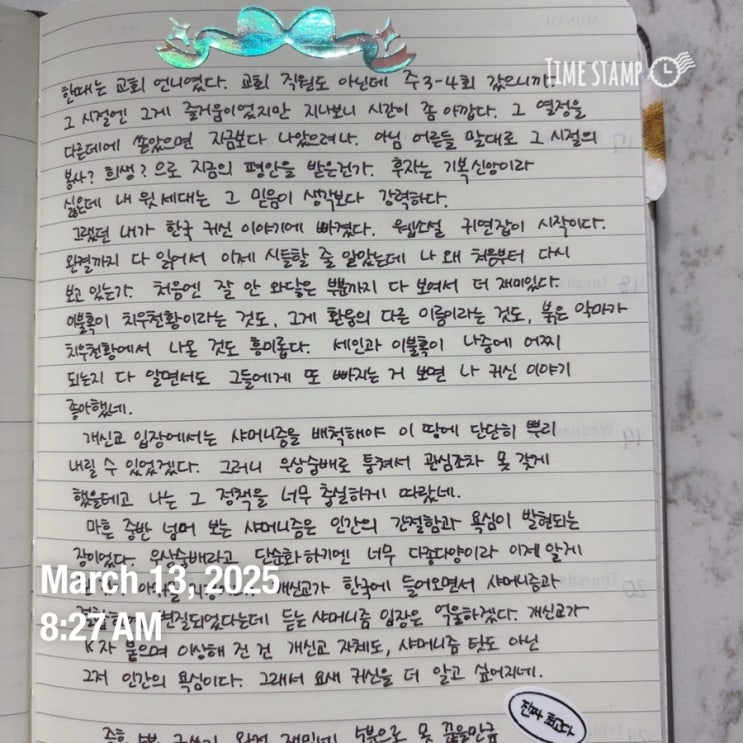 TIME STAMP
한때는 교회 언니였다. 교회 직원도 아닌데 주 3-4회 갔으니까.
그 시절엔 그게 즐거움이었지만 지나보니 시간이 좀 아깝다. 그 열정을
다른데에 쏟았으면 지금보다 나았으려나. 아님 어른들 말대로 그 시절의
봉사? 희생? 으로 지금의 평안을 받은건가. 후자는 기복신앙이라
싫은데 내 윗 세대는 그 믿음이 생각보다 강력하다.
그랬던 내가 한국 귀신 이야기에 빠졌다. 웹소설 귀연잡이 시작이다.
완결까지 다 읽어서 이제 시들할 줄 알았는데 나 왜 처음부터 다시
보고 있는가. 처음엔 잘 안 와닿은 부분까지 다 보여서 더 재미있다.
이불록이 치우천황이라는 것도, 그게 환웅의 다른 이름이라는 것도, 붉은 악마가
치우천황에서 나온 것도 흥미롭다. 세인과 이불록이 나중에 어찌
되는지 다 알면서도 그들에게 또 빠지는 거 보면 나 귀신 이야기
좋아했네.
개신교 입장에서는 샤머니즘을 배척해야 이 땅에 단단히 뿌리
내릴 수 있었겠다. 그러니 우상숭배로 퉁쳐서 관심조차 못 갖게
했을테고 나는 그 정책을 너무 충실하게 따랐네.
마흔 중반 넘어 보는 샤머니즘은 인간의 간절함과 욕심이 발현되는
장이었다. 우상숭배라고 단순화하기엔 너무 다종다양이라 이제 알게
개신교가 한국에 들어오면서 샤머니즘과
변질되었다는데 듣는 샤머니즘 입장은 억울하겠다. 개신교가
K자 붙으며 이상해 진 건 개신교 자체도, 샤머니즘 탓도 아닌
그저 인간의 욕심이다. 그래서 요새 귀신을 더 알고 싶어지네.
진짜 최고다
March 13, 2025
8:27 AM